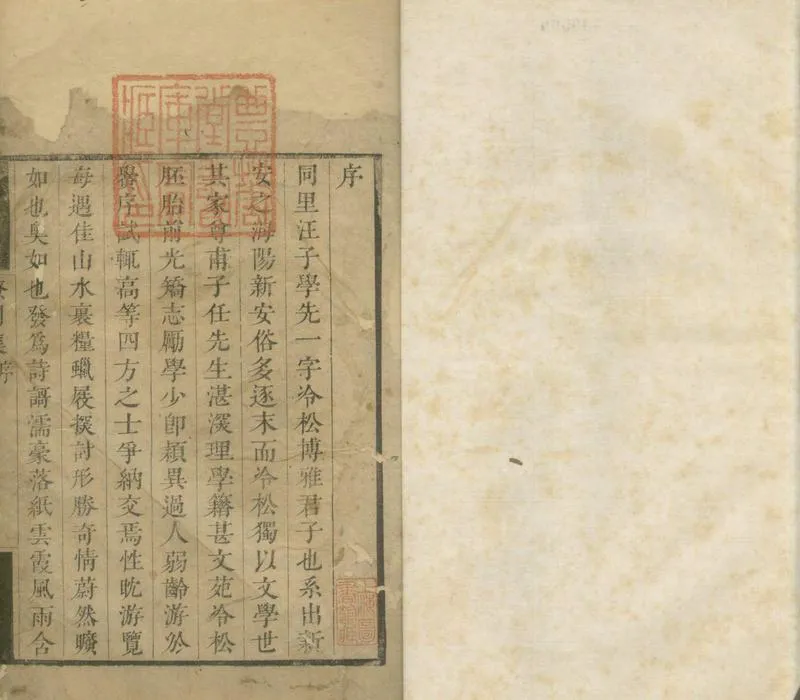 序
同里汪子學先一字冷松博雅君子也系出新
安之海陽新安俗多逐末而冷松獨以文學世
其家尊甫子任先生湛深理學籍甚文苑冷松
胚胎前光矯志勵學少卽穎異過人弱齡游於
黌序試輒高等四方之士爭納交焉性眈游覽
每遇佳山水裹糧蠟屐探討形勝奇情蔚然曠
如也奧如也發為詩謌濡豪落紙雲霞風雨含
序